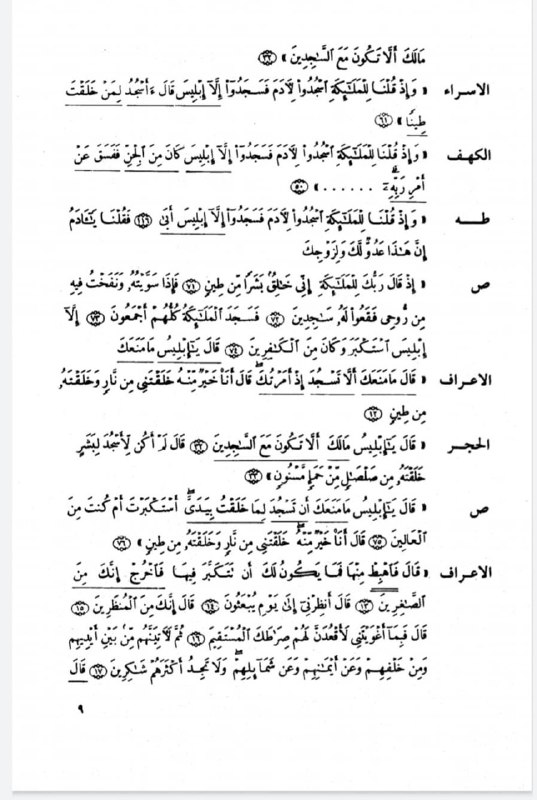 مَالَكَ أَلَّا تَكُونَ مَعَ ٱلسَّٰجِدِينَ » ٣٢
الاسراء « وَإِذْ قُلْنَا لِلْمَلَٰٓئِكَةِ ٱسْجُدُوا۟ لِـَٔادَمَ فَسَجَدُوٓا۟ إِلَّآ إِبْلِيسَ قَالَ ءَأَسْجُدُ لِمَنْ خَلَقْتَ
طِينًا » ٦١
الكهف « وَإِذْ قُلْنَا لِلْمَلَٰٓئِكَةِ ٱسْجُدُوا۟ لِـَٔادَمَ فَسَجَدُوٓا۟ إِلَّآ إِبْلِيسَ كَانَ مِنَ ٱلْجِنِّ فَفَسَقَ عَنْ
أَمْرِ رَبِّهِۦٓ ...... » ٥٠
طــه « وَإِذْ قُلْنَا لِلْمَلَٰٓئِكَةِ ٱسْجُدُوا۟ لِـَٔادَمَ فَسَجَدُوٓا۟ إِلَّآ إِبْلِيسَ أَبَىٰ ١١٦ فَقُلْنَا يَٰٓـَٔادَمُ
إِنَّ هَٰذَا عَدُوٌّ لَّكَ وَلِزَوْجِكَ
ص « إِذْ قَالَ رَبُّكَ لِلْمَلَٰٓئِكَةِ إِنِّى خَٰلِقٌۢ بَشَرًا مِّن طِينٍ ٧١ فَإِذَا سَوَّيْتُهُۥ وَنَفَخْتُ فِيهِ
مِن رُّوحِى فَقَعُوا۟ لَهُۥ سَٰجِدِينَ ٧٢ فَسَجَدَ ٱلْمَلَٰٓئِكَةُ كُلُّهُمْ أَجْمَعُونَ ٧٣ إِلَّآ
إِبْلِيسَ ٱسْتَكْبَرَ وَكَانَ مِنَ ٱلْكَٰفِرِينَ ٧٤ قَالَ يَٰٓإِبْلِيسُ مَا مَنَعَكَ
الاعراف « قَالَ مَا مَنَعَكَ أَلَّا تَسْجُدَ إِذْ أَمَرْتُكَ قَالَ أَنَا۠ خَيْرٌ مِّنْهُ خَلَقْتَنِى مِن نَّارٍ وَخَلَقْتَهُۥ
مِن طِينٍ ١٢
الحجر « قَالَ يَٰٓإِبْلِيسُ مَالَكَ أَلَّا تَكُونَ مَعَ ٱلسَّٰجِدِينَ ٣٢ قَالَ لَمْ أَكُن لِّأَسْجُدَ لِبَشَرٍ
خَلَقْتَهُۥ مِن صَلْصَٰلٍ مِّنْ حَمَإٍ مَّسْنُونٍ » ٣٣
ص « قَالَ يَٰٓإِبْلِيسُ مَا مَنَعَكَ أَن تَسْجُدَ لِمَا خَلَقْتُ بِيَدَىَّ أَسْتَكْبَرْتَ أَمْ كُنتَ مِنَ
ٱلْعَالِينَ ٧٥ قَالَ أَنَا۠ خَيْرٌ مِّنْهُ خَلَقْتَنِى مِن نَّارٍ وَخَلَقْتَهُۥ مِن طِينٍ » ٧٦
الاعراف « قَالَ فَٱهْبِطْ مِنْهَا فَمَا يَكُونُ لَكَ أَن تَتَكَبَّرَ فِيهَا فَٱخْرُجْ إِنَّكَ مِنَ
ٱلصَّٰغِرِينَ ١٣ قَالَ أَنظِرْنِىٓ إِلَىٰ يَوْمِ يُبْعَثُونَ ١٤ قَالَ إِنَّكَ مِنَ ٱلْمُنظَرِينَ ١٥
قَالَ فَبِمَآ أَغْوَيْتَنِى لَأَقْعُدَنَّ لَهُمْ صِرَٰطَكَ ٱلْمُسْتَقِيمَ ١٦ ثُمَّ لَـَٔاتِيَنَّهُم مِّنۢ بَيْنِ أَيْدِيهِمْ
وَمِنْ خَلْفِهِمْ وَعَنْ أَيْمَٰنِهِمْ وَعَن شَمَآئِلِهِمْ وَلَا تَجِدُ أَكْثَرَهُمْ شَٰكِرِينَ ١٧ قَالَ
٩